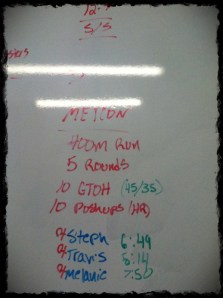 12-9
5/5
METCON
400m Run
5 Rounds
10 GTOH (45/35)
10 Pushups (HR)
Steph 6:49
Travis 8:14
Melanie 7:50